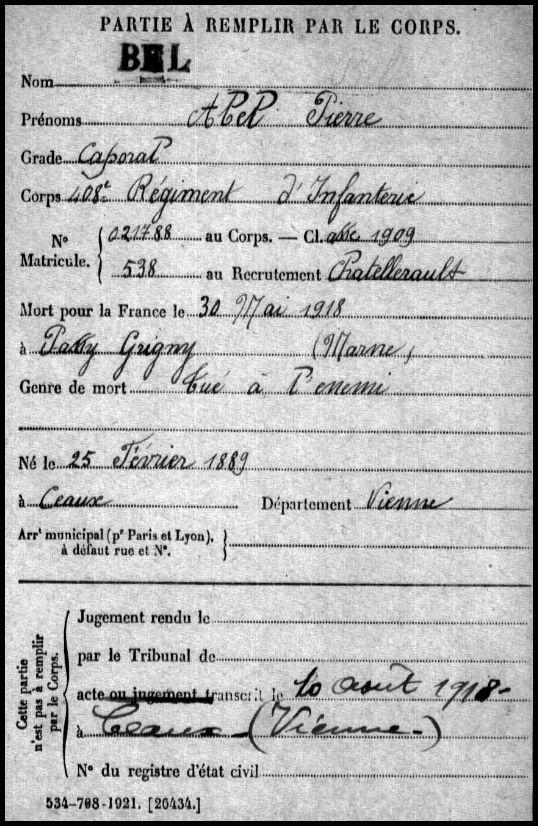 PARTIE À REMPLIR PAR LE CORPS.
BEL
Nom
Prénoms Abel Pierre
Grade Caporal
Corps 408e Régiment d'Infanterie
N° Matricule. 021788 au Corps. — Cl. asse 1909
538 au Recrutement Chatellerault
Mort pour la France le 30 Mai 1918
à Grigny (Marne)
Genre de mort tué à l'enemi
Né le 25 Février 1889
à Ceaux Département Vienne
Arrt municipal (pr Paris et Lyon),
à défaut rue et N°.
Cette partie n'est pas à remplir par le Corps.
Jugement rendu le
par le Tribunal de
acte ou jugement transcrit le 10 août 1918-
à Ceaux - (Vienne-)
N° du registre d'état civil
534-708-1921. [26434.]